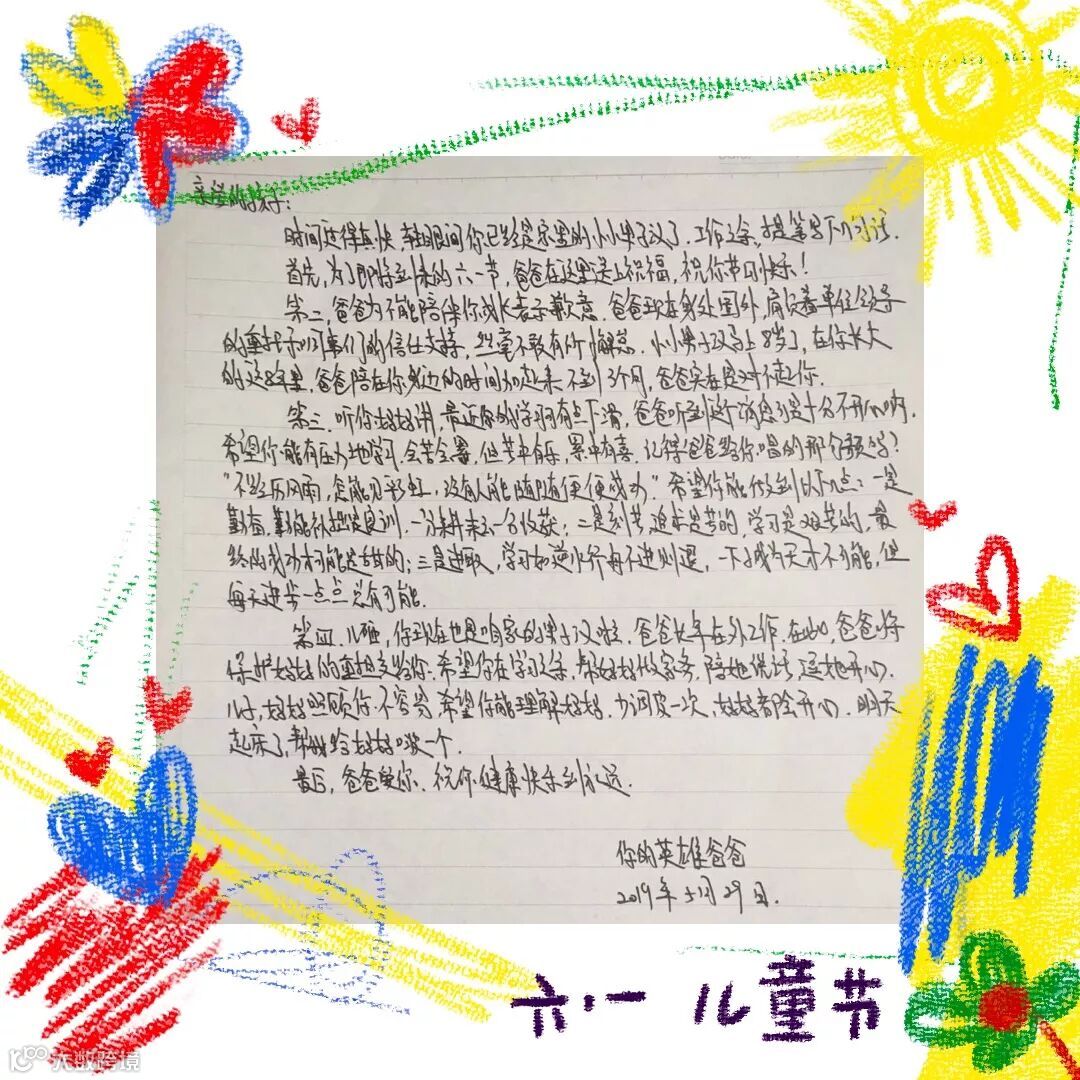 亲爱的孩子：
时间过得真快，转眼间你已经是家里的小小男子汉了。工作之余，提笔写下几句话。
首先，为了即将到来的六一节，爸爸在这里送上祝福，祝你节日快乐！
第二，爸爸为不能陪伴你成长表示歉意。爸爸现在身处国外，肩负着单位领导
的重托和同事们的信任支持，丝毫不敢有所懈怠。小小男子汉马上8岁了，在你长大
的这8年里，爸爸陪在你身边的时间加起来不到3个月，爸爸实在是对不起你。
第三，听你妈妈讲，最近你的学习有点下滑，爸爸听到这个消息很是十分不开心啊，
希望你能有压力地学习，会苦会累，但苦中有乐，累中有喜。记得爸爸给你唱的那个歌吗？
“不经历风雨，怎能见彩虹，没有人能随随便便成功”希望你能做到以下几点：一是
勤奋，勤能补拙是良训，一分耕耘一分收获；二是刻苦，追求是苦的，学习是艰苦的，最
终的成功才可能是甜的；三是进取，学习如逆水行舟不进则退，一下子成为天才不可能，但
每天进步一点点总有可能。
第四，儿砸，你现在也是咱家的男子汉啦。爸爸长年在外工作，在此，爸爸将
保护妈妈的重担交给你。希望你在学习之余，帮妈妈做家务，陪她说话，逗她开心。
儿子，妈妈照顾你不容易，希望你能理解妈妈，少调皮一次，妈妈都会开心。明天
起床了，帮我给妈妈啵一个。
最后，爸爸爱你，祝你健康快乐到永远。
你的英雄爸爸
2019年5月29日。
六·一 儿童节
大数跨境